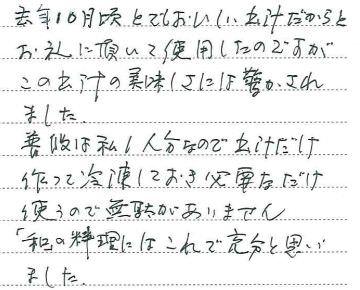 去年10月頃とてもおいしい出汁だからと
お礼に頂いて使用したのですが
この出汁の美味しさには驚かされ
ました.
普段は私1人分なので出汁だけ
作って冷凍しておき必要なだけ
使うので無駄がありません
「和」の料理にはこれで充分と思い
ました.